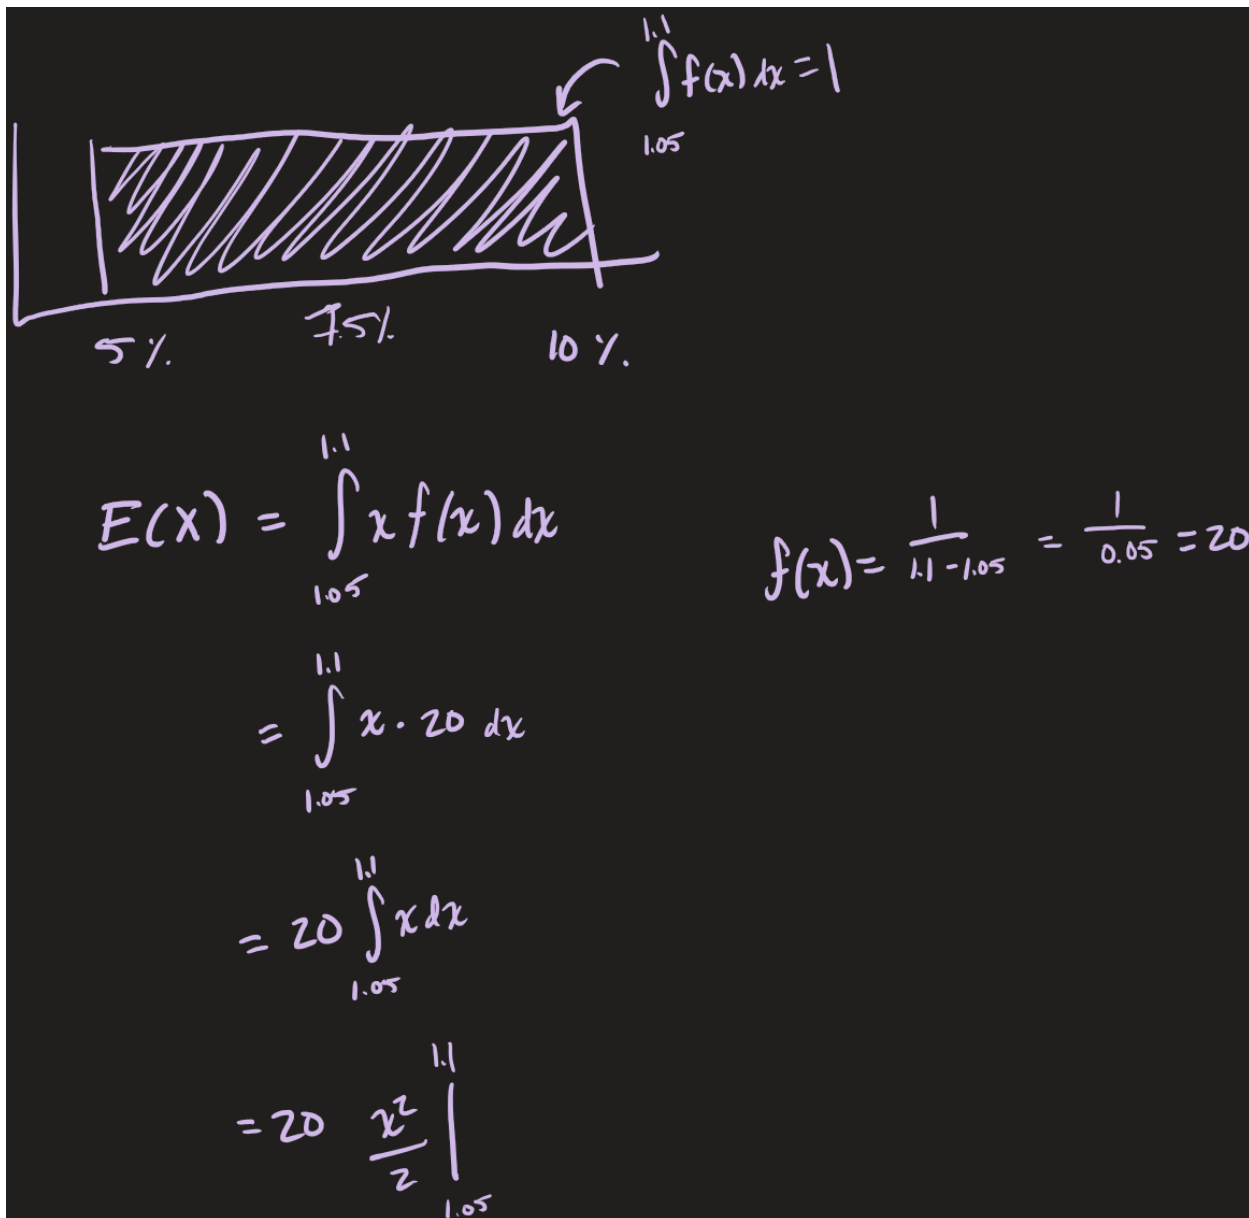 ∫_{1.05}^{1.1} f(x) dx = 1
5 %. 7.5%. 10 %.
E(X) = ∫_{1.05}^{1.1} x f(x) dx
f(x) = 1/(1.1 - 1.05) = 1/0.05 = 20
= ∫_{1.05}^{1.1} x · 20 dx
= 20 ∫_{1.05}^{1.1} x dx
= 20 x²/2 |_{1.05}^{1.1}